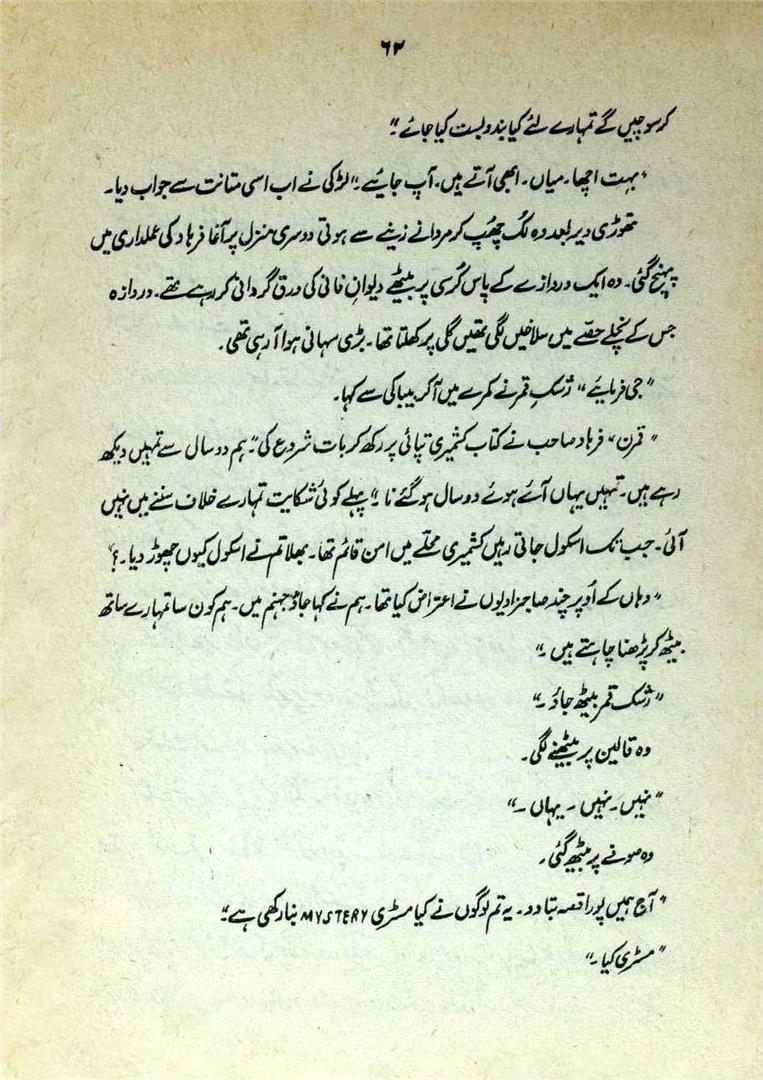 ۶۲
کر سوچیں گے تمہارے لئے کیا بندوبست کیا جائے۔"
"بہت اچھا۔ میاں۔ ابھی آتے ہیں۔ آپ جایئے۔" لڑکی نے اب اسی متانت سے جواب دیا۔
تھوڑی دیر بعد وہ لُک چھُپ کر مردانے زینے سے ہوتی دوسری منزل پر آغا فرہاد کی عملداری میں
پہنچ گئی۔ وہ ایک دروازے کے پاس کُرسی پر بیٹھے دیوانِ فانی کی ورق گردانی کر رہے تھے۔ دروازہ
جس کے نچلے حصّے میں سلاخیں لگی تھیں گلی پر کھلتا تھا۔ بڑی سہانی ہوا آ رہی تھی۔
"جی فرمایئے" رشکِ قمر نے کمرے میں آ کر بیباکی سے کہا۔
"قمرن" فرہاد صاحب نے کتاب کشمیری تپائی پر رکھ کر بات شروع کی "ہم دو سال سے تمہیں دیکھ
رہے ہیں۔ تمہیں یہاں آئے ہوئے دو سال ہو گئے نا۔" پہلے کوئی شکایت تمہارے خلاف سننے میں نہیں
آئی۔ جب تک اسکول جاتی رہیں کشمیری محلّے میں امن قائم تھا۔ بھلا تم نے اسکول کیوں چھوڑ دیا۔؟"
"وہاں کے اُوپر چند صاحبزادیوں نے اعتراض کیا تھا۔ ہم نے کہا جاؤ جہنم میں۔ ہم کون سا تمہارے ساتھ
بیٹھ کر پڑھنا چاہتے ہیں۔"
"رشک قمر بیٹھ جاؤ۔"
وہ قالین پر بیٹھنے لگی۔
"نہیں۔ نہیں۔ یہاں۔"
وہ صوفے پر بیٹھ گئی۔
"آج ہمیں پورا قصہ بتا دو۔ یہ تم لوگوں نے کیا مسٹری MYSTERY بنا رکھی ہے۔"
"مسٹری کیا۔"